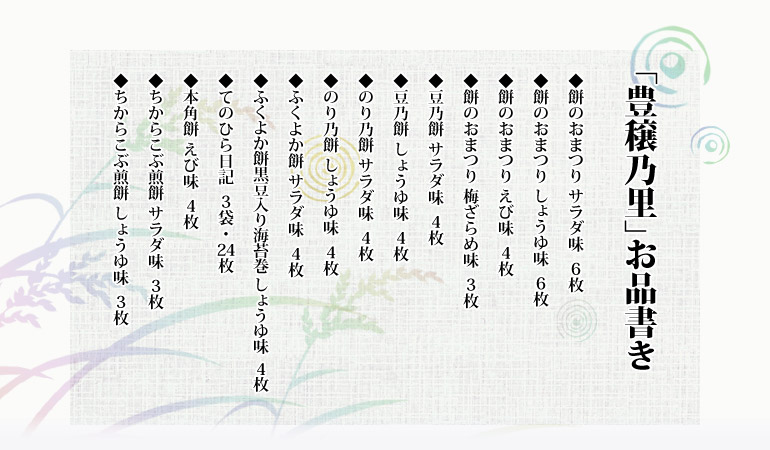 「豊穣乃里」お品書き
◆餅のおまつり サラダ味 6枚
◆餅のおまつり しょうゆ味 6枚
◆餅のおまつり えび味 4枚
◆餅のおまつり 梅ざらめ味 3枚
◆豆乃餅 サラダ味 4枚
◆豆乃餅 しょうゆ味 4枚
◆のり乃餅 サラダ味 4枚
◆のり乃餅 しょうゆ味 4枚
◆ふくよか餅 サラダ味 4枚
◆ふくよか餅黒豆入り海苔巻 しょうゆ味 4枚
◆てのひら日記 3袋・24枚
◆本角餅 えび味 4枚
◆ちからこぶ煎餅 サラダ味 3枚
◆ちからこぶ煎餅 しょうゆ味 3枚